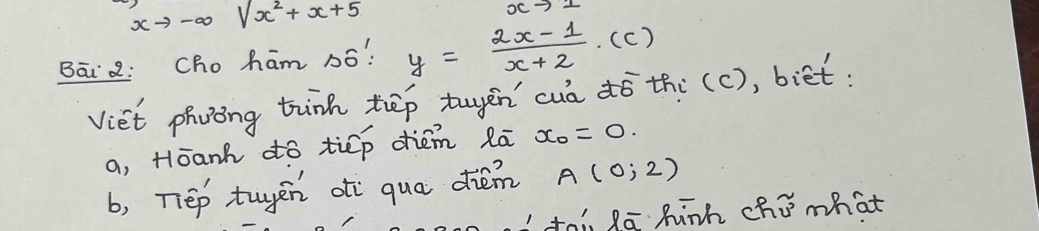 x → -∞ √x² + x + 5 x → 1
Bài 2: Cho hàm số: y = \frac{2x - 1}{x + 2} . (C)
Viết phương trình tiếp tuyến của đồ thị (C), biết :
a, Hoành độ tiếp điểm là x₀ = 0.
b, Tiếp tuyến đi qua điểm A (0; 2)
là hình chữ nhật